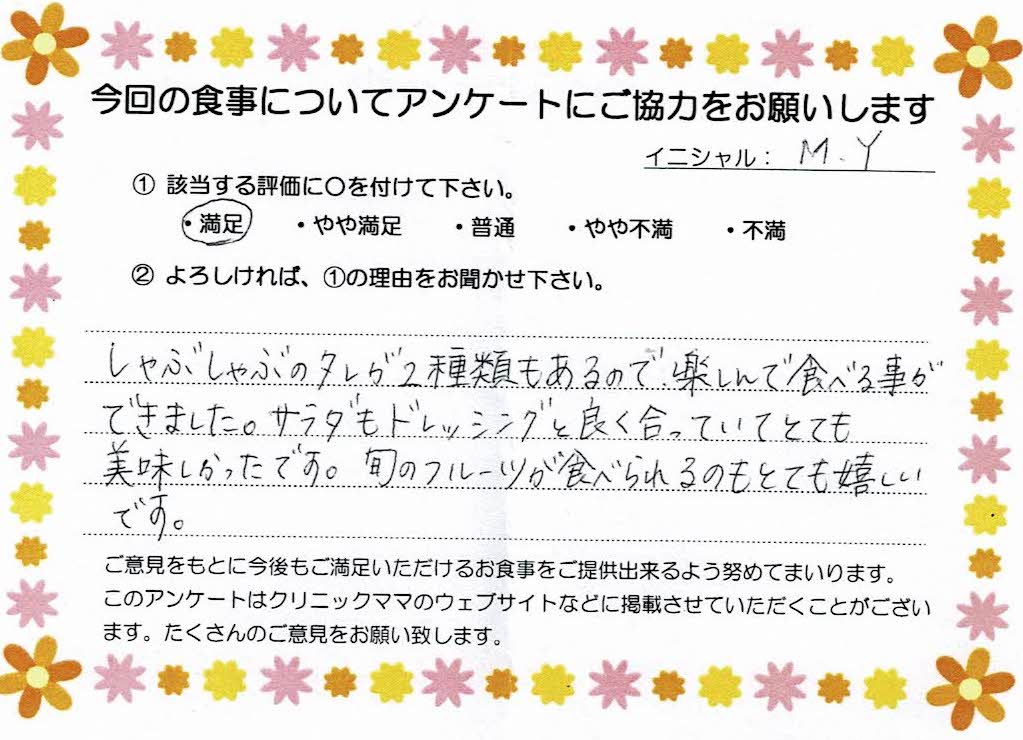 今回の食事についてアンケートにご協力をお願いします
イニシャル： M.Y
① 該当する評価に〇を付けて下さい。
・満足 ・やや満足 ・普通 ・やや不満 ・不満
② よろしければ、①の理由をお聞かせ下さい。
しゃぶしゃぶのタレが2種類もあるので、楽しんで食べる事が
できました。サラダもドレッシングと良く合っていてとても
美味しかったです。旬のフルーツが食べられるのもとても嬉しい
です。
ご意見をもとに今後もご満足いただけるお食事をご提供出来るよう努めてまいります。
このアンケートはクリニックママのウェブサイトなどに掲載させていただくことがござい
ます。たくさんのご意見をお願い致します。